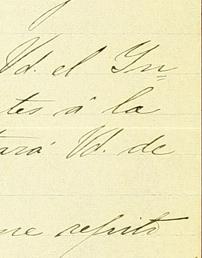 Vd. el In=
tes á la
tará Vd. de
me repito